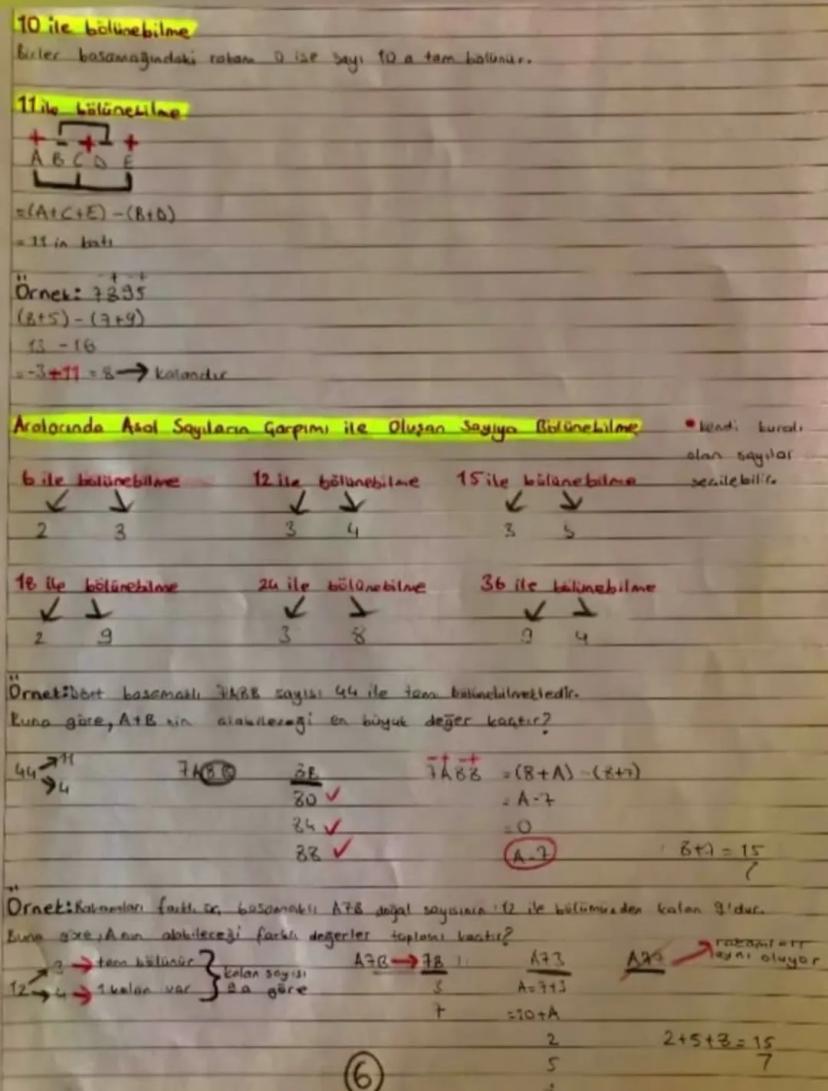 10 ile bölünebilme
Birler basamağındaki rakam 0 ise sayı 10 a tam bölünür.
11 ile bölünebilme
+ - + - +
A B C D E
=(A+C+E)-(B+D)
= 11 in katı
- + - +
Örnek: 7895
(8+5)-(7+9)
13 - 16
=-3+11 = 8 → kalandır
Aralarında Asal Sayıların Çarpımı ile Oluşan Sayıya Bölünebilme
• kendi kuralı
olan sayılar
seçilebilir.
6 ile bölünebilme 12 ile bölünebilme 15 ile bölünebilme
2 3 3 4 3 5
18 ile bölünebilme 24 ile bölünebilme 36 ile bölünebilme
2 9 3 8 9 4
Örnek: Dört basamaklı 7A8B sayısı 44 ile tam bölünebilmektedir.
Buna göre, A+B nin alabileceği en büyük değer kaçtır?
44 → 11
→ 4
7A8B
8B
80 ✓
84 ✓
88 ✓
- + - +
7A88 = (8+A) - (8+7)
= A-7
= 0
A=7
8+7 = 15
Örnek: Rakamları farklı üç basamaklı A7B doğal sayısının 12 ile bölümünden kalan 9'dur.
Buna göre, A nın alabileceği farklı değerler toplamı kaçtır?
12 → 3 → tam bölünür
→ 4 → 1 kalan var
kalan sayısı
9 a göre
A7B → 7B
3
7
A73
A+7+3
=10+A
2
5
rakamları
aynı oluyor
2+5+8 = 15
6